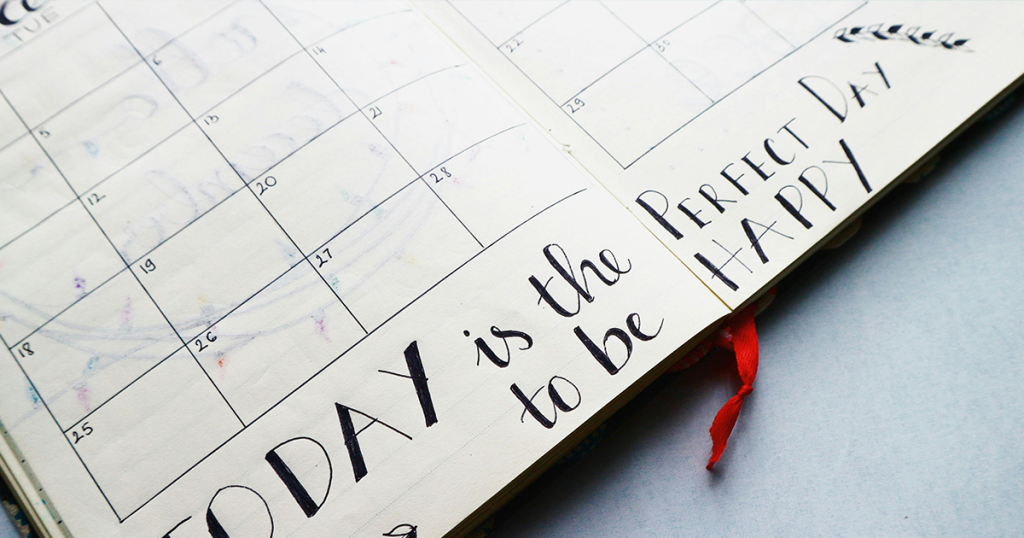 TUE
5 6
12 13 14
18 19 20 21
25 26 27 28
22
29 30
TODAY is the PERFECT DAY
to be HAPPY